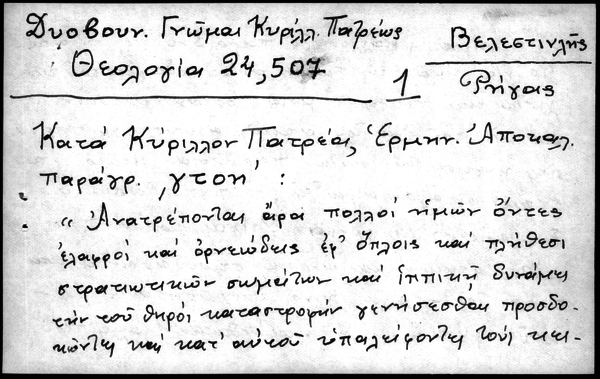 Δυοβουν. Γνῶμαι Κυρίλλ. Πατρέως
Θεολογία 24,507
1
Βελεστινλῆς
Ρήγας
Κατά Κύριλλον Πατρέα, Ἑρμην. Ἀποκαλ.
παράγρ. ͵γτοη' :
" Ἀνατρέπονται ἄρα πολλοί ἡμῶν ὄντες
ἐλαφροί καί ὀρνεώδεις ἐφ' ὅπλοις καί πλήθεσι
στρατιωτικῶν σωμάτων καί ἱππικῇ δυνάμει
τήν τοῦ θηρός καταστροφήν γενήσεσθαι προσδο-
κῶντες καί κατ' αὐτοῦ ὑπαλείφοντες τούς